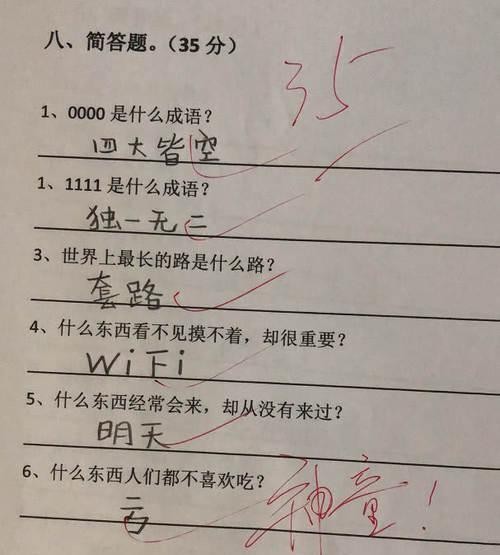 八、简答题。（35 分）
35
1、0000 是什么成语？
四大皆空
1、1111 是什么成语？
独一无二
3、世界上最长的路是什么路？
套路
4、什么东西看不见摸不着，却很重要？
WiFi
5、什么东西经常会来，却从没有来过？
明天
6、什么东西人们都不喜欢吃？
亏
神童！